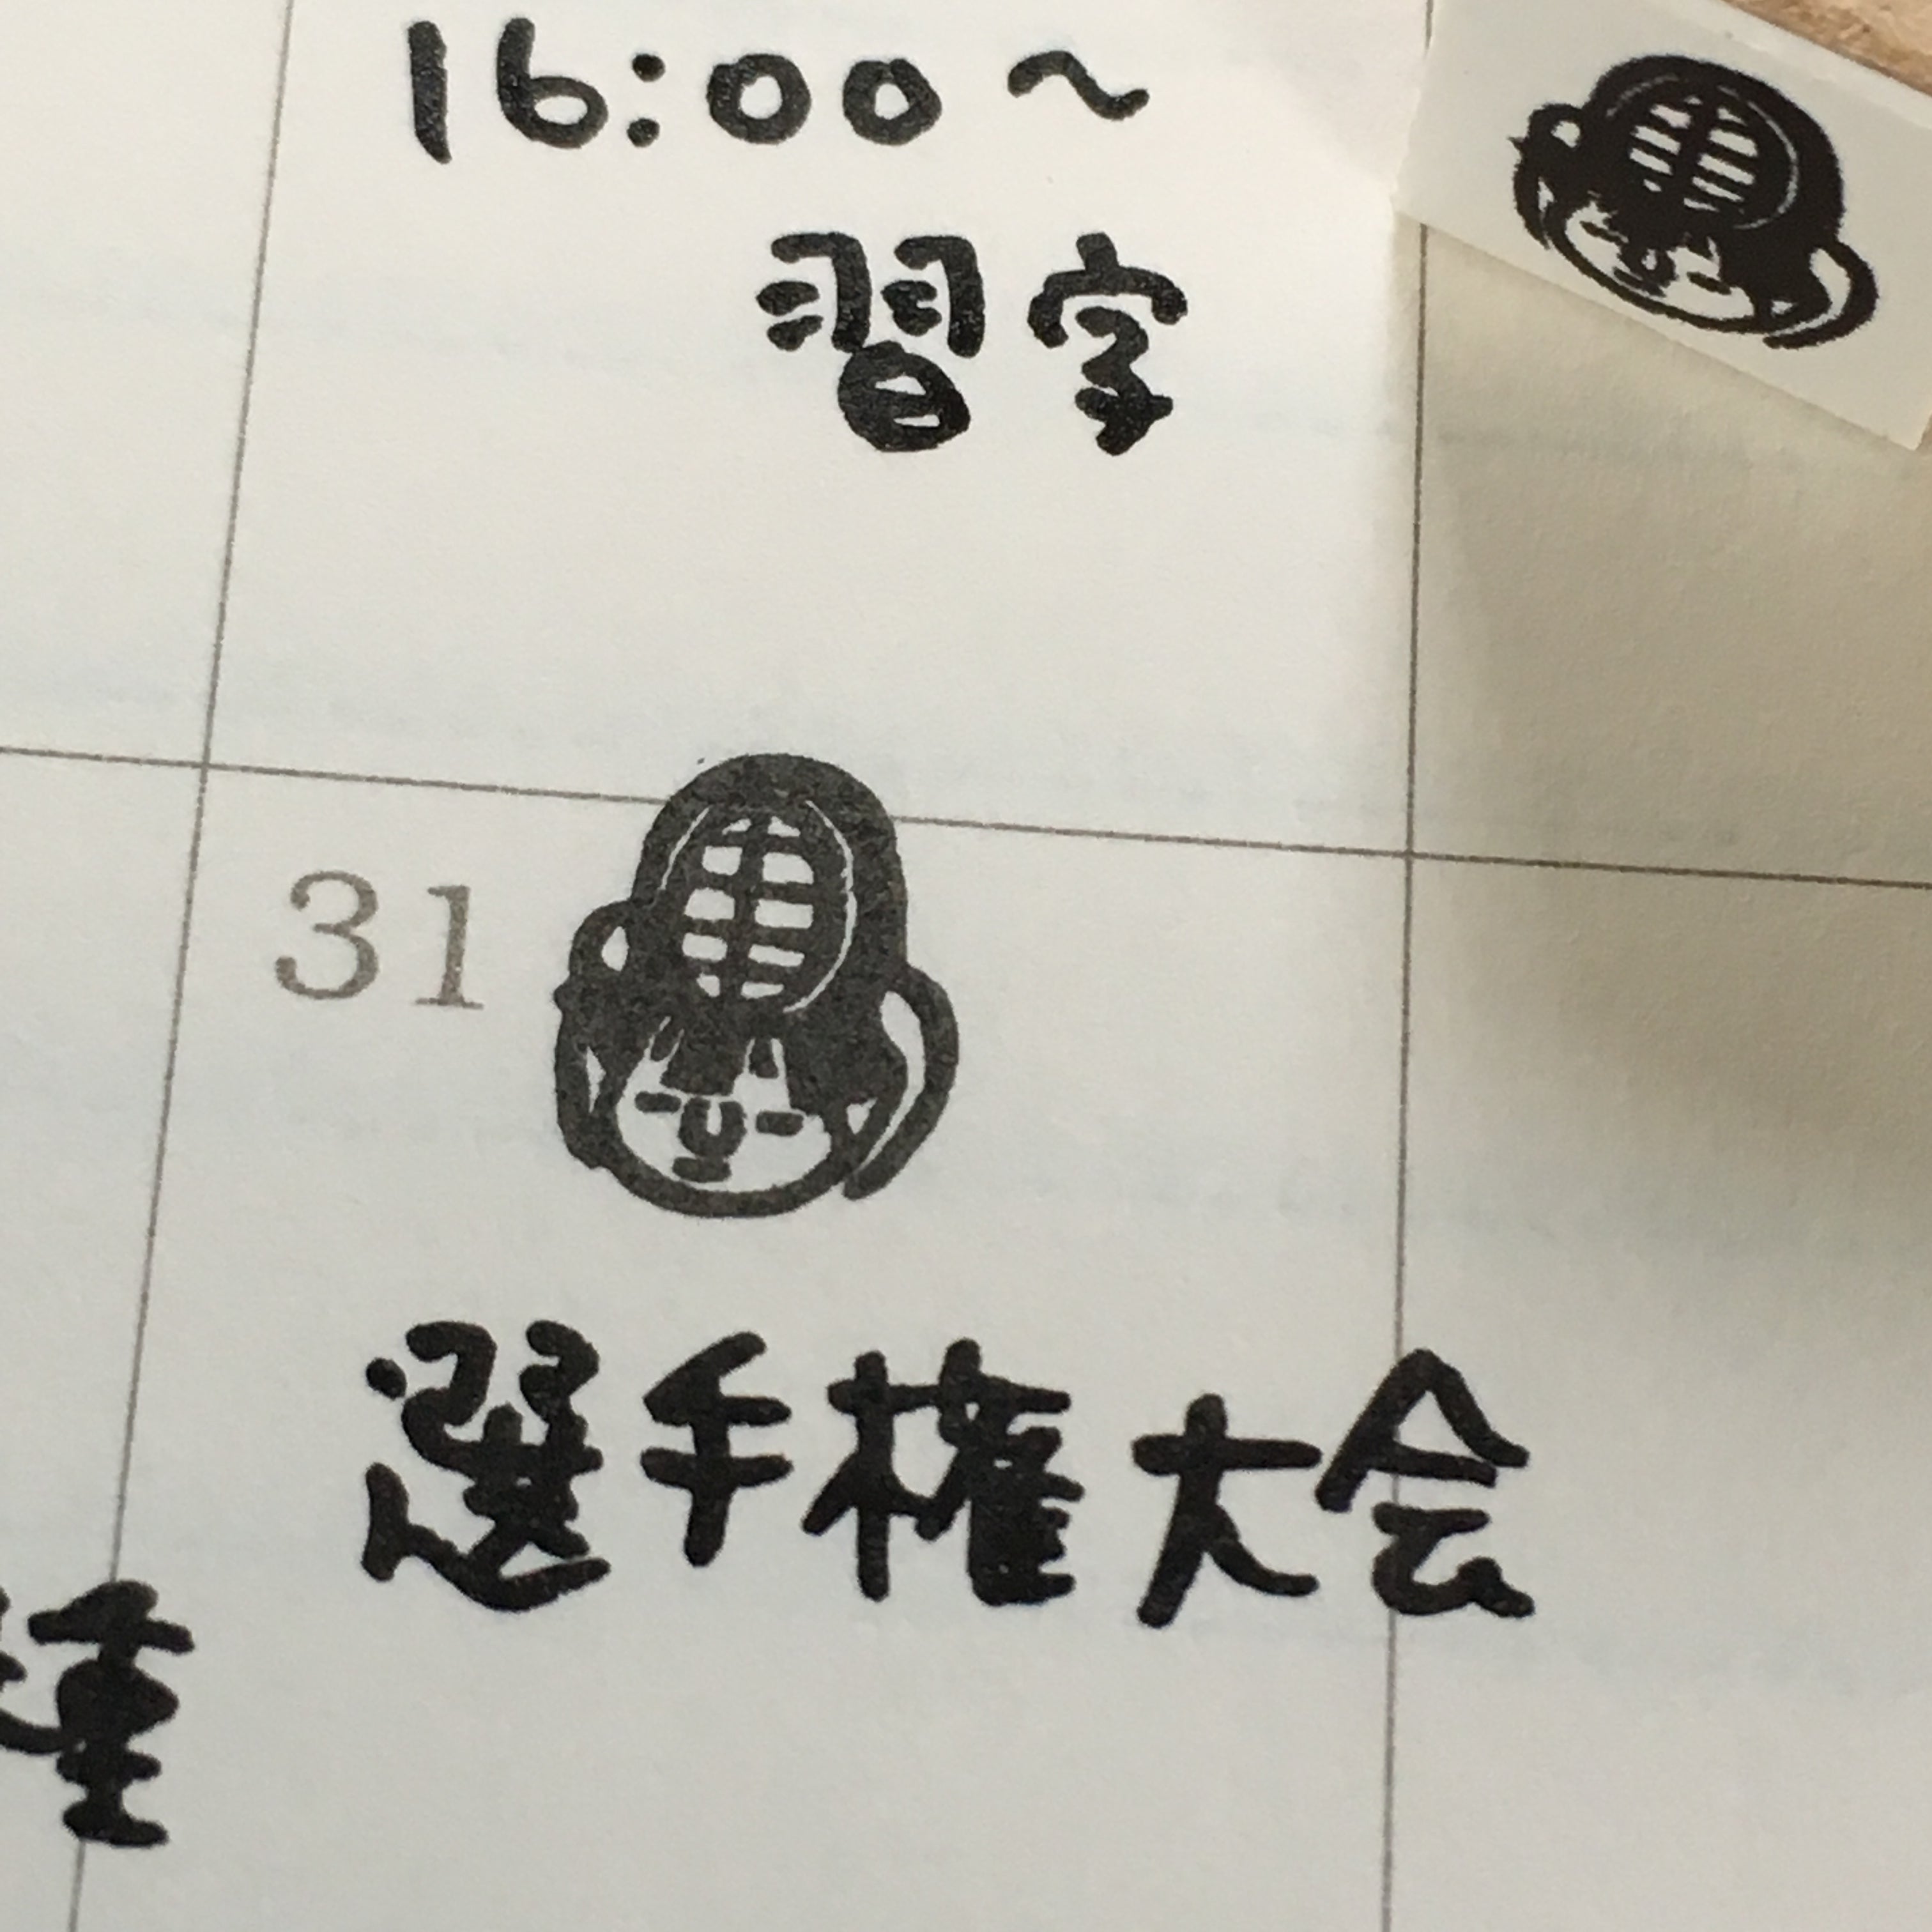 16:00～
習字
31
選手権大会
種